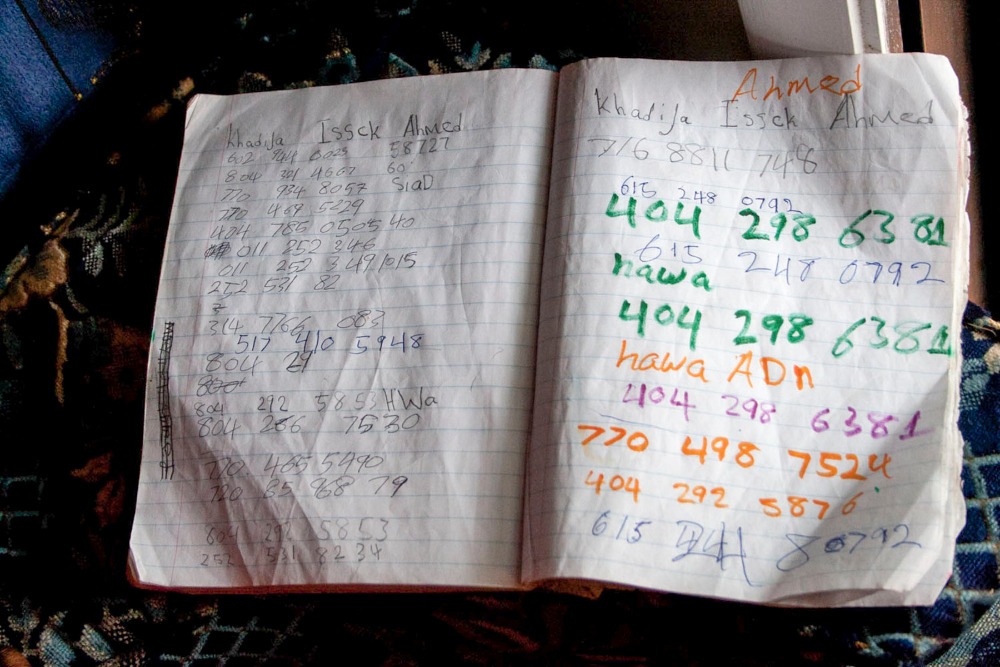 Khadija Issck Ahmed
602 944 6023 58727
804 301 4607 60
770 934 8057 SiaD
770 469 5229
404 785 0505 40
011 252 346
011 252 3491015
252 531 82
314 7766 083
517 410 5948
804 29
804 292 5853 HWa
804 266 7530
770 465 5490
720 85 968 79
604 292 5853
252 531 82 34
Ahmed
Khadija Issck Ahmed
716 8811 748
615 248 0792
404 298 6381
615 248 0792
hawa
404 298 6381
hawa ADn
404 298 6381
770 498 7524
404 292 5876
615 80792